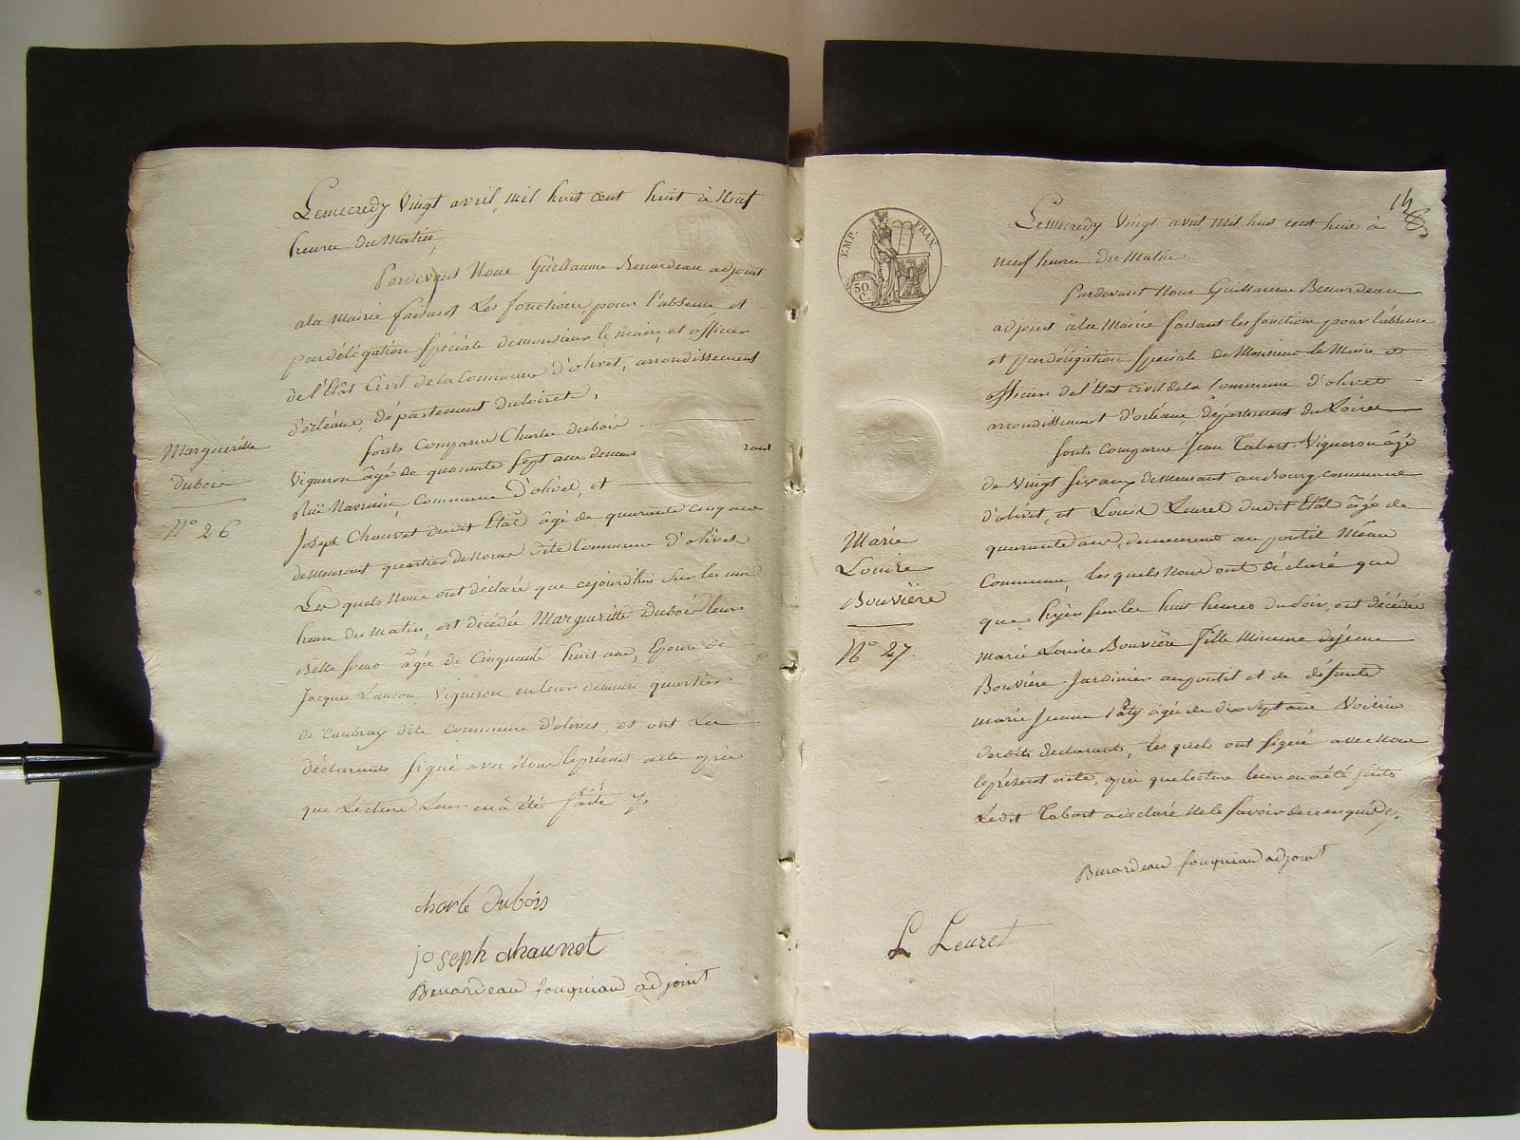 Lemecredy Vingt avril, mil huit cent huit à Neuf
heure du Matin,
Pardevant Nous Guillaume Benardeau adjoint
ala Mairie faisant Les fonctions pour l'absence et
par délégation spéciale de monsieur le maire, et officier
de l'Etat Civil de la Commune d'olivet, arrondissement
d'orléans, département du loiret,
sonts Comparus Charle dubois
Vigneron âgé de quarante sept ans demeu rant
Commune d'olivet, et
Joseph Chauvet dudit Etat âgé de quarante cinq ans
demeurant quartier de dite Commune d'olivet
Les quels Nous ont déclaré que cejourdhui sur les
heure du matin, est décédée Margueritte Dubois leur
Belle soeur âgée de Cinquante huit ans, Epouse de
Jacques Vigneron, en leur demeure quartier
de dite commune d'olivet, et ont Les
déclarants signé avec Nous le présent acte après
que Lecture Leur en à été faite
Margueritte
Dubois
N° 26
charle dubois
joseph chauvet
Benardeau fouqueau adjoint
14
EMP. FRAN.
50
C.
Lemecredy Vingt avril mil huit cent huit à
neuf heure du Matin
Pardevant Nous Guillaume Benardeau
adjoint à la Mairie faisant les fonctions pour l'absence
et par délégation spéciale de Monsieur le Maire et
officier de l'Etat civil de la Commune d'olivet
arrondissement d'orléans, département du Loiret
sonts comparus Jean Tabart Vigneron âgé
de Vingt six ans demeurant au Bourg commune
d'olivet, et Louis Leuret dudit Etat âgé de
quarante ans, demeurant au poutil Même
Commune, les quels Nous ont déclaré que
que hyer sur les huit heures du soir, est décédée
Marie Louise Bouvière fille Mineure de
Bouvière Jardinier au poutil et de défunte
marie Jeanne Paty âgée de dix sept ans Voisine
desdits déclarants, les quels ont signé avec Nous
le présent acte, après que lecture leur en a été faite
Ledit Tabart a déclaré Ne le savoir de ce enquis
Marie
Louise
Bouvière
N° 27.
Benardeau fouqueau adjoint
L Leuret